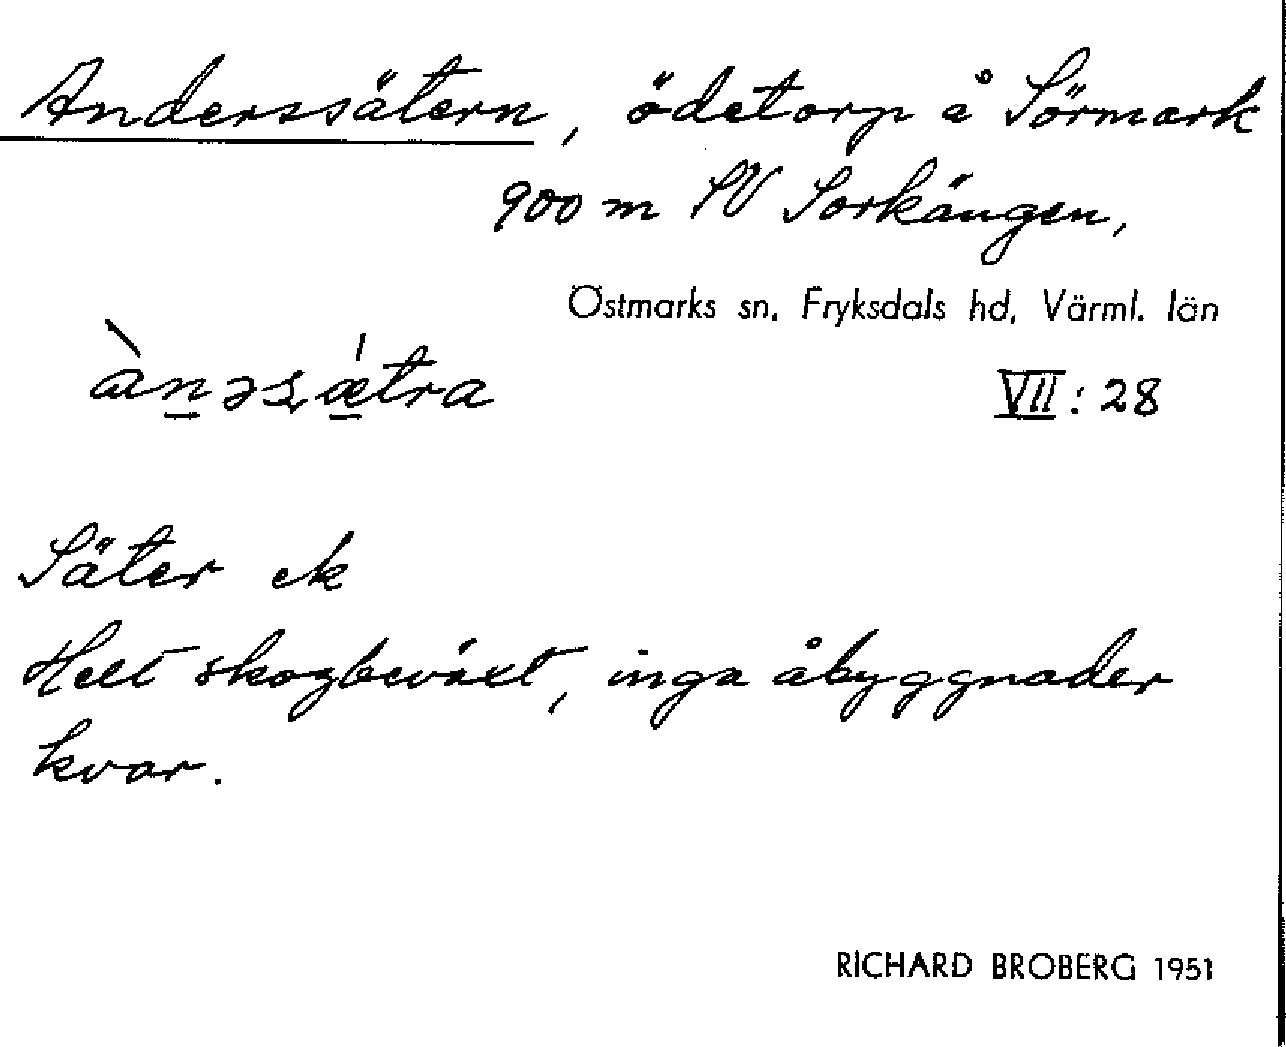 Anderssätern, ödetorp å Sörmark
900 m SV Sorkängen,
Östmarks sn, Fryksdals hd, Värml. län
VII : 28
Säter ek
Helt skogbeväxt, inga åbyggnader
kvar.
RICHARD BROBERG 1951